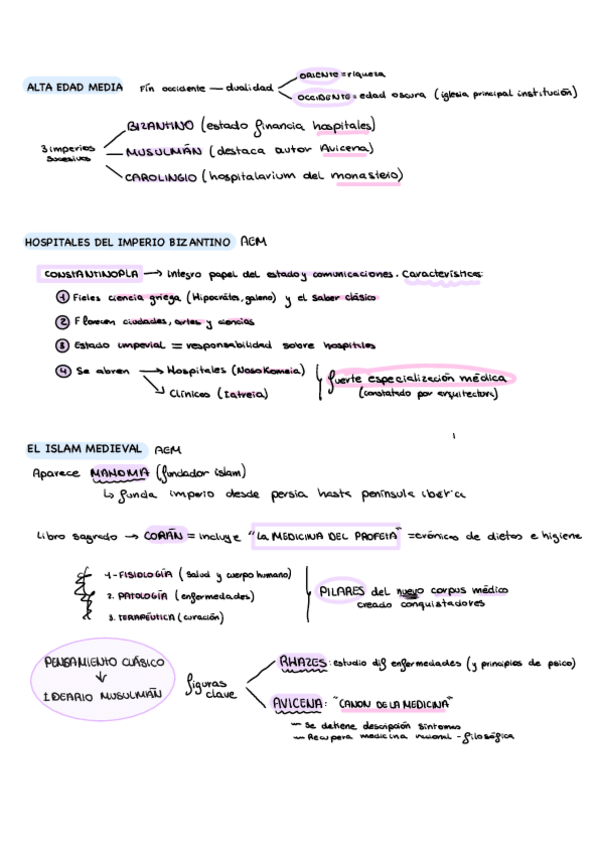 ALTA EDAD MEDIA Fin occidente — dualidad
ORIENTE = riqueza
OCCIDENTE = edad oscura (iglesia principal institución)
3 imperios sucesivos
BIZANTINO (estado financia hospitales)
MUSULMÁN (destaca autor Avicena)
CAROLINGIO (hospitalarium del monasterio)
HOSPITALES DEL IMPERIO BIZANTINO AEM
CONSTANTINOPLA → integro papel del estado y comunicaciones. Características:
1 Fieles ciencia griega (Hipocrátes, galeno) y el saber clásico
2 Florecen ciudades, artes y ciencias
3 Estado imperial = responsabilidad sobre hospitales
4 Se abren → Hospitales (Nosokomeia)
Clínicas (Iatreia)
fuerte especialización médica
(constatado por arquitectura)
EL ISLAM MEDIEVAL AEM
Aparece MAHOMA (fundador islam)
↳ funda imperio desde persia hasta península iberica
Libro sagrado → CORÁN = incluye "LA MEDICINA DEL PROFETA" = crónicas de dietas e higiene
1 - FISIOLOGÍA (salud y cuerpo humano)
2. PATOLOGÍA (enfermedades)
3. TERAPÉUTICA (curación)
PILARES del nuevo corpus médico
creado conquistadores
PENSAMIENTO CLÁSICO
↓
IDEARIO MUSULMÁN
figuras clave
RHAZES: estudio dif enfermedades (y principios de psico)
AVICENA: "CANON DE LA MEDICINA"
— Se detiene descripción síntomas
— Recupera medicina racional - filosófica